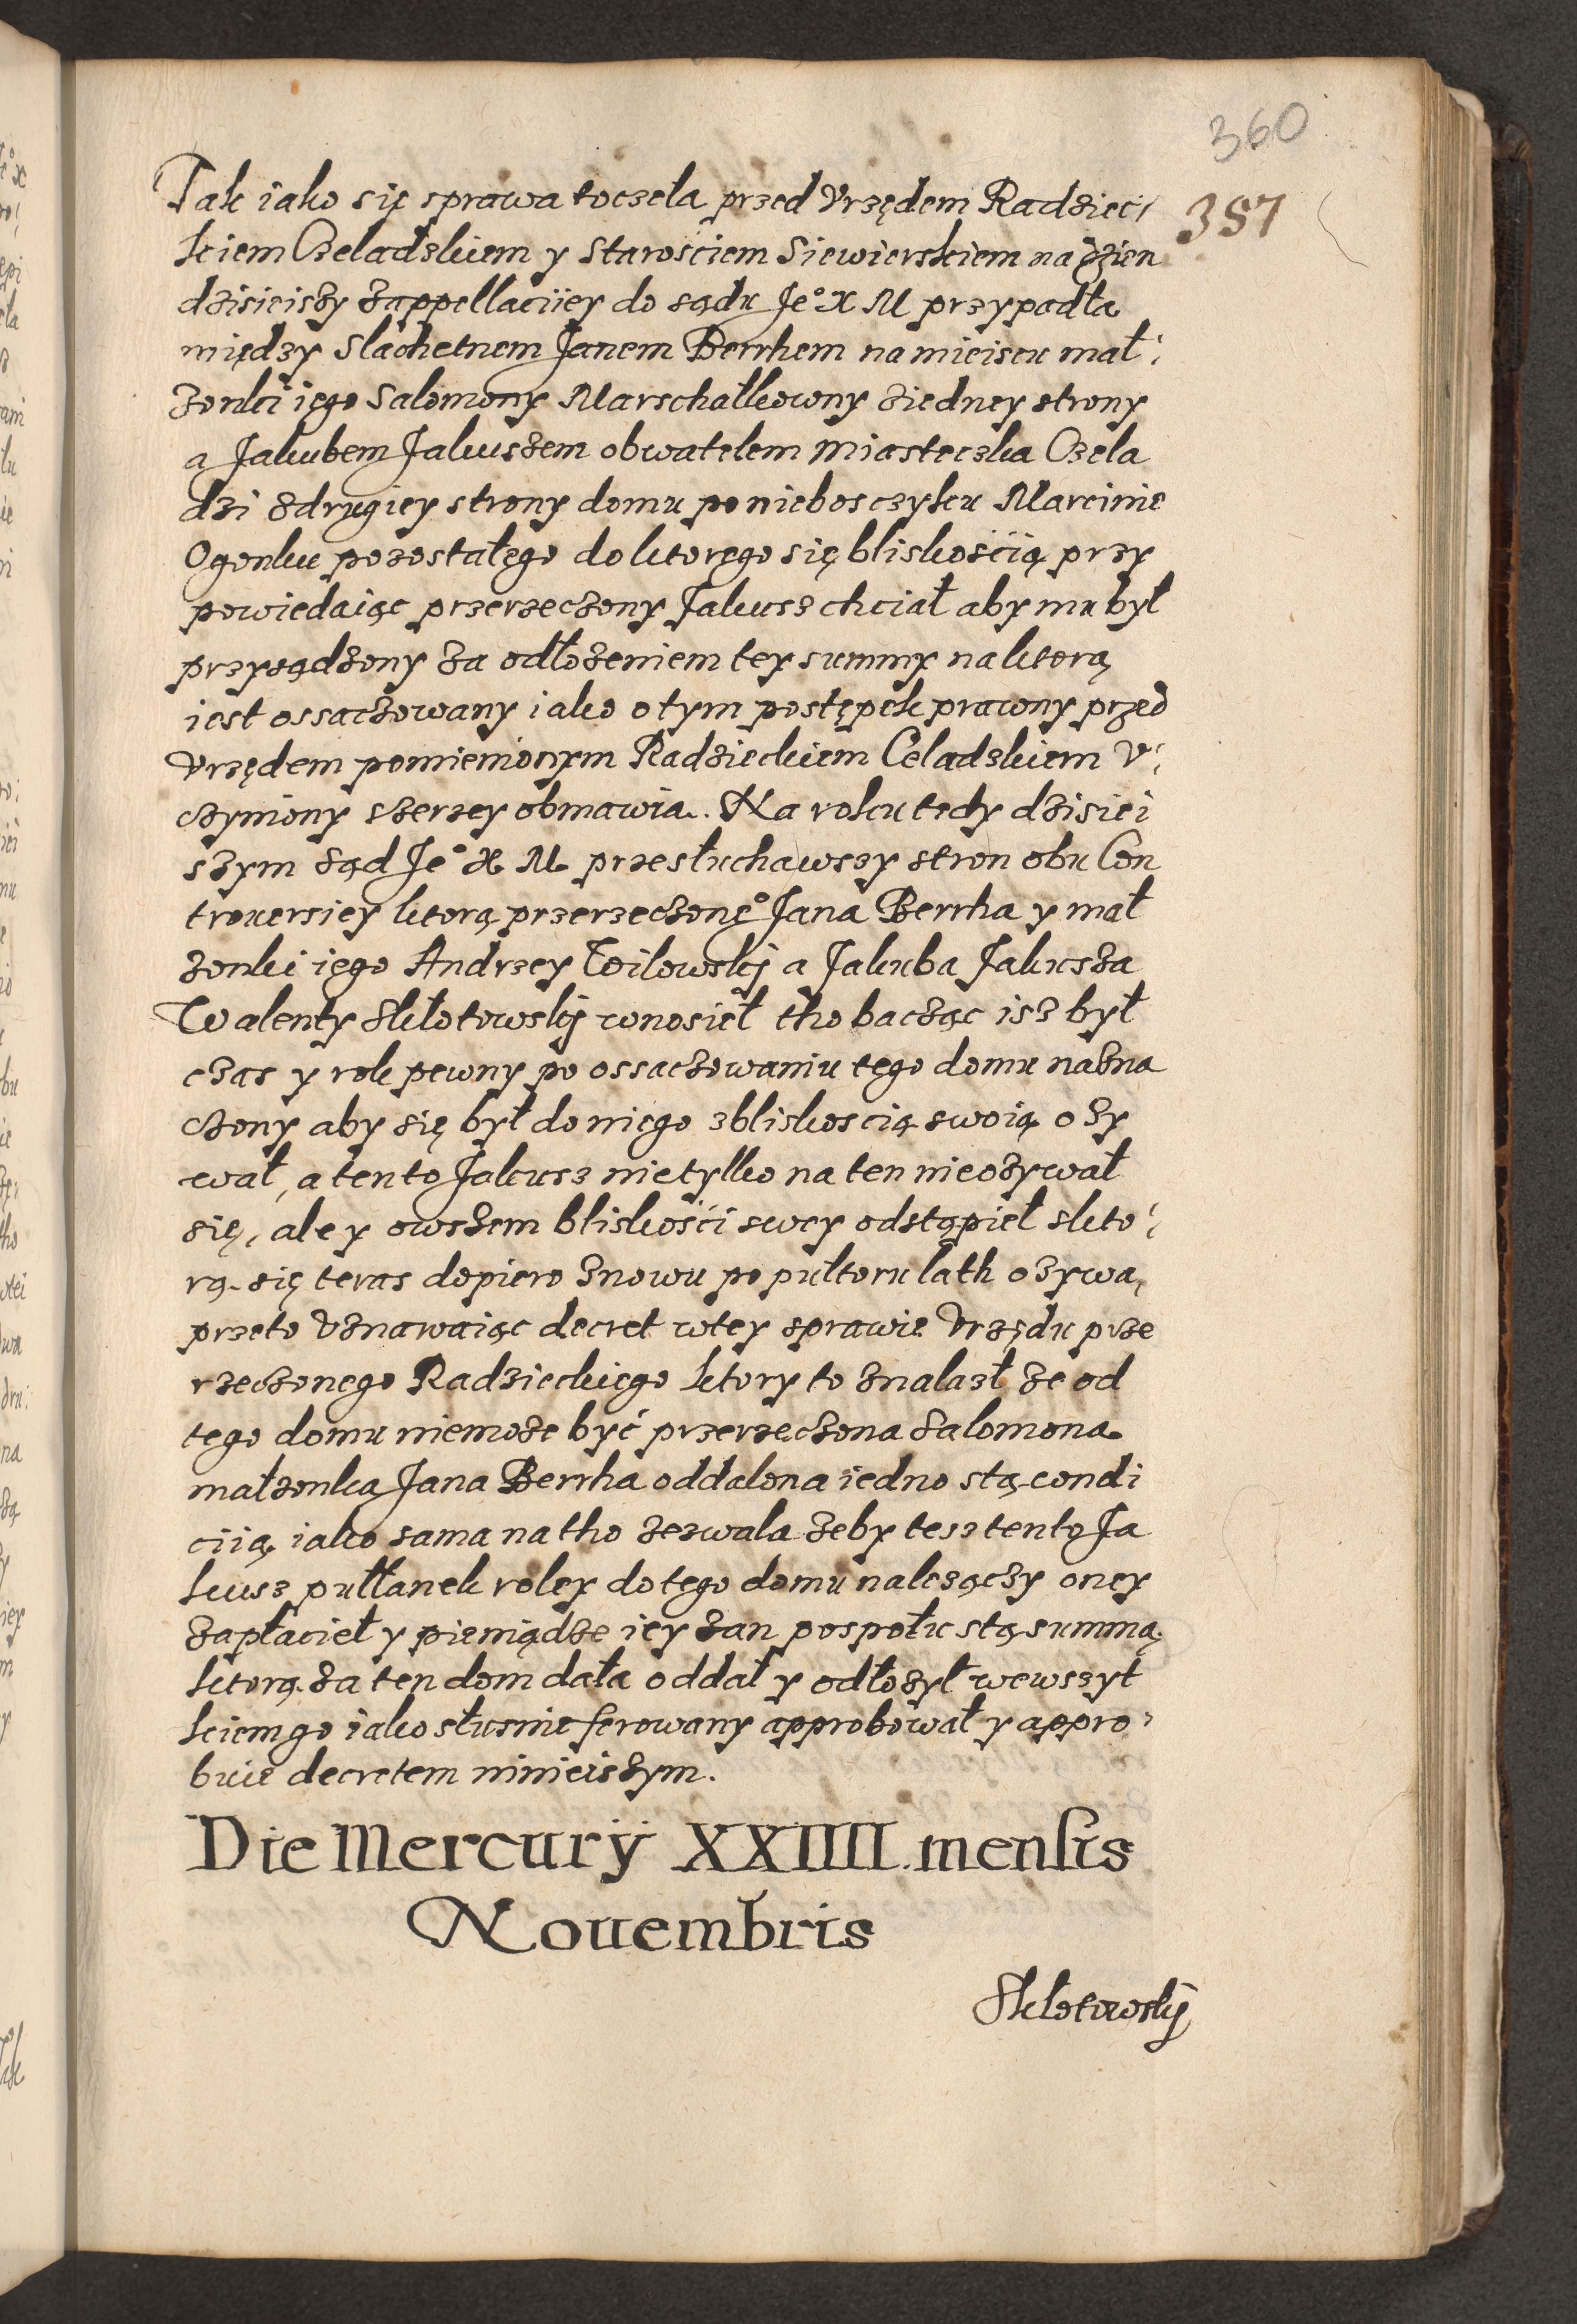 360
387
Tak iako się sprawa toczeła przed Vrzędem Radziec/
kiem Czeladzkiem y Starosciem Siewierskiem na dzien
dzisieiszy zappellaciiey do sądu Je° X M przypadła
między Slachetnem Janem Berrhem na mieiscu mał¦
zonki iego Salomony Marschałkowny ziedney strony
a Jakubem Jakuszem obwatelem Miasteczka Czela
dzi zdrugiey strony domu po niebosczyku Marcinie
Ogonku pozostałęgo do ktoręgo się bliskoscią przy
powiedaiąc przerzeczony Jakusz chciał aby mu był
przysądzony za odłozeniem tey summy na ktorą
iest ossaczowany iako o tym postępek prawny przed
Vrzędem pomienionym Radzieckiem Celadzkiem V¦
czyniony szerzey obmawia. Na roku tedy dzisiei
szym sąd Je° X M przesłuchawszy stron obu Con
trouersiey ktorą przerzeczonę° Jana Berrha y mał
zonki iego Andrzey Woilowskij a Jakuba Jakusza
Walenty Skłotowskij wnosieł tho bacząc isz był
czas y rok pewny po ossaczowaniu tęgo domu nazna
czony aby się był do niego zbliskoscią swoią ozy
wał, a tento Jakusz nie tylko na ten nieozywał
się, ale y owszem bliskości swey odstąpieł skto¦
rą się teras dopiero znowu po pułtoru lath ozywa,
przeto Vznawaiąc decret wtey sprawie Vrzędu prze
rzeczonego Radzieckięgo ktory to znalazł ze od
tego domu niemoze być przerzeczona Salomona
małzonka Jana Berrha oddalona iedno stą condi
ciią iako sama na tho zezwala zeby tesz tento Ja
kusz pułłanek roley do tęgo domu nalezączy oney
zapłacieł y pieniądze iey zan pospołu stą summą
ktorą za ten dom dała oddał y odłozył we wszyt
kiem go iako słusnie ferowany approbował y appro¦
buie decretem ninieiszym.
Die Mercurij XXIIII. mensis
Nouembris
Skłotowskij